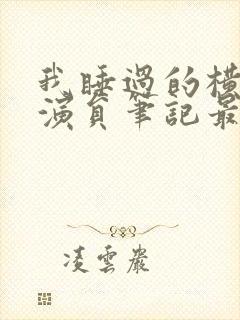 我睡過的橫
演員筆記最
凌雲巖